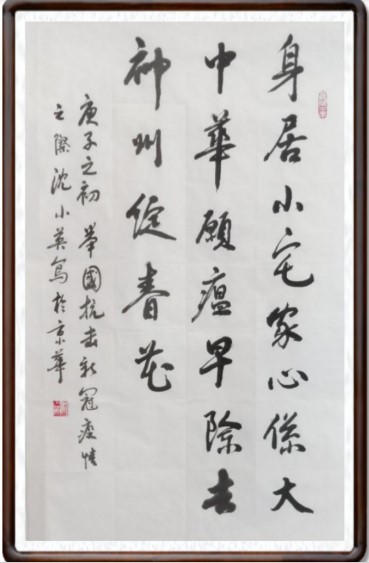 身居小宅家心係大
中華願瘟早除去
神州綻春花
庚子之初舉國抗击新冠疫情
之際沈小英寫於京華